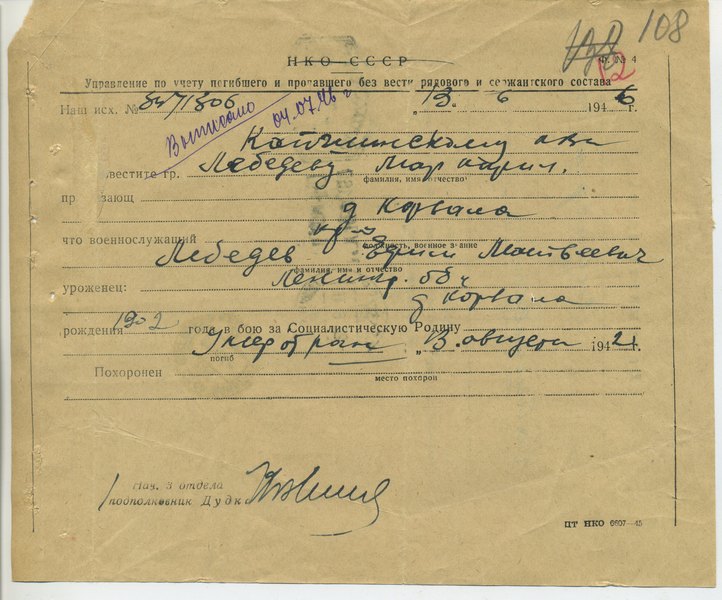 108
НКО СССР
ф. № 4
12
Управление по учету погибшего и пропавшего без вести рядового и сержантского состава
Наш исх. № 3/471306
„13. 6 1946 г.
Выписано 04.07.46 г
Капшинскому
вестите гр. Лебедеву
фамилия, имя отчество
пр зающ д Корвала
что военнослужащий кр-ц
должность, военное звание
Лебедев Ефим Матвеевич
фамилия, имя и отчество
уроженец: Ленингр. обл
д Корвала
рождения 1902 года в бою за Социалистическую Родину
Умер от ран „13. августа 1942 г.
погиб
Похоронен
место похорон
Нач. 3 отдела
подполковник Дудк
ЦТ НКО 6607—45